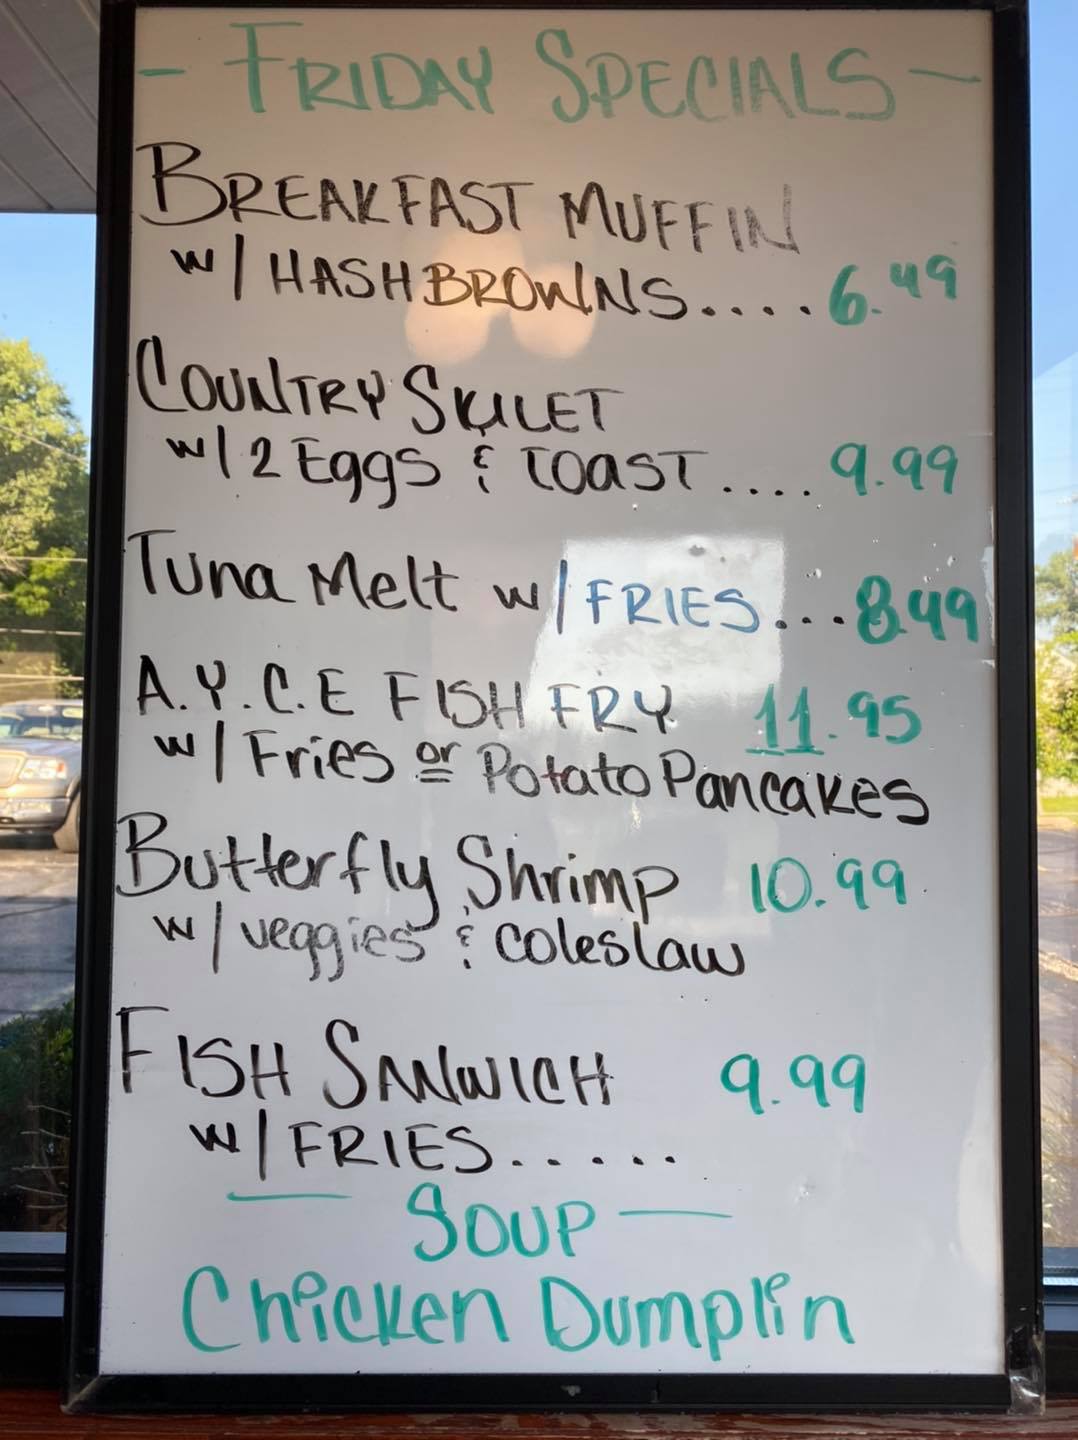 - FRIDAY SPECIALS -
BREAKFAST MUFFIN
w/ HASHBROWNS.... 6.49
COUNTRY SKILLET
w/ 2 Eggs & TOAST.... 9.99
Tuna Melt w/ FRIES... 8.49
A.Y.C.E FISH FRY 11.95
w/ Fries or Potato Pancakes
Butterfly Shrimp 10.99
w/ veggies & coleslaw
FISH SANWICH 9.99
w/ FRIES.....
— SOUP —
Chicken Dumplin